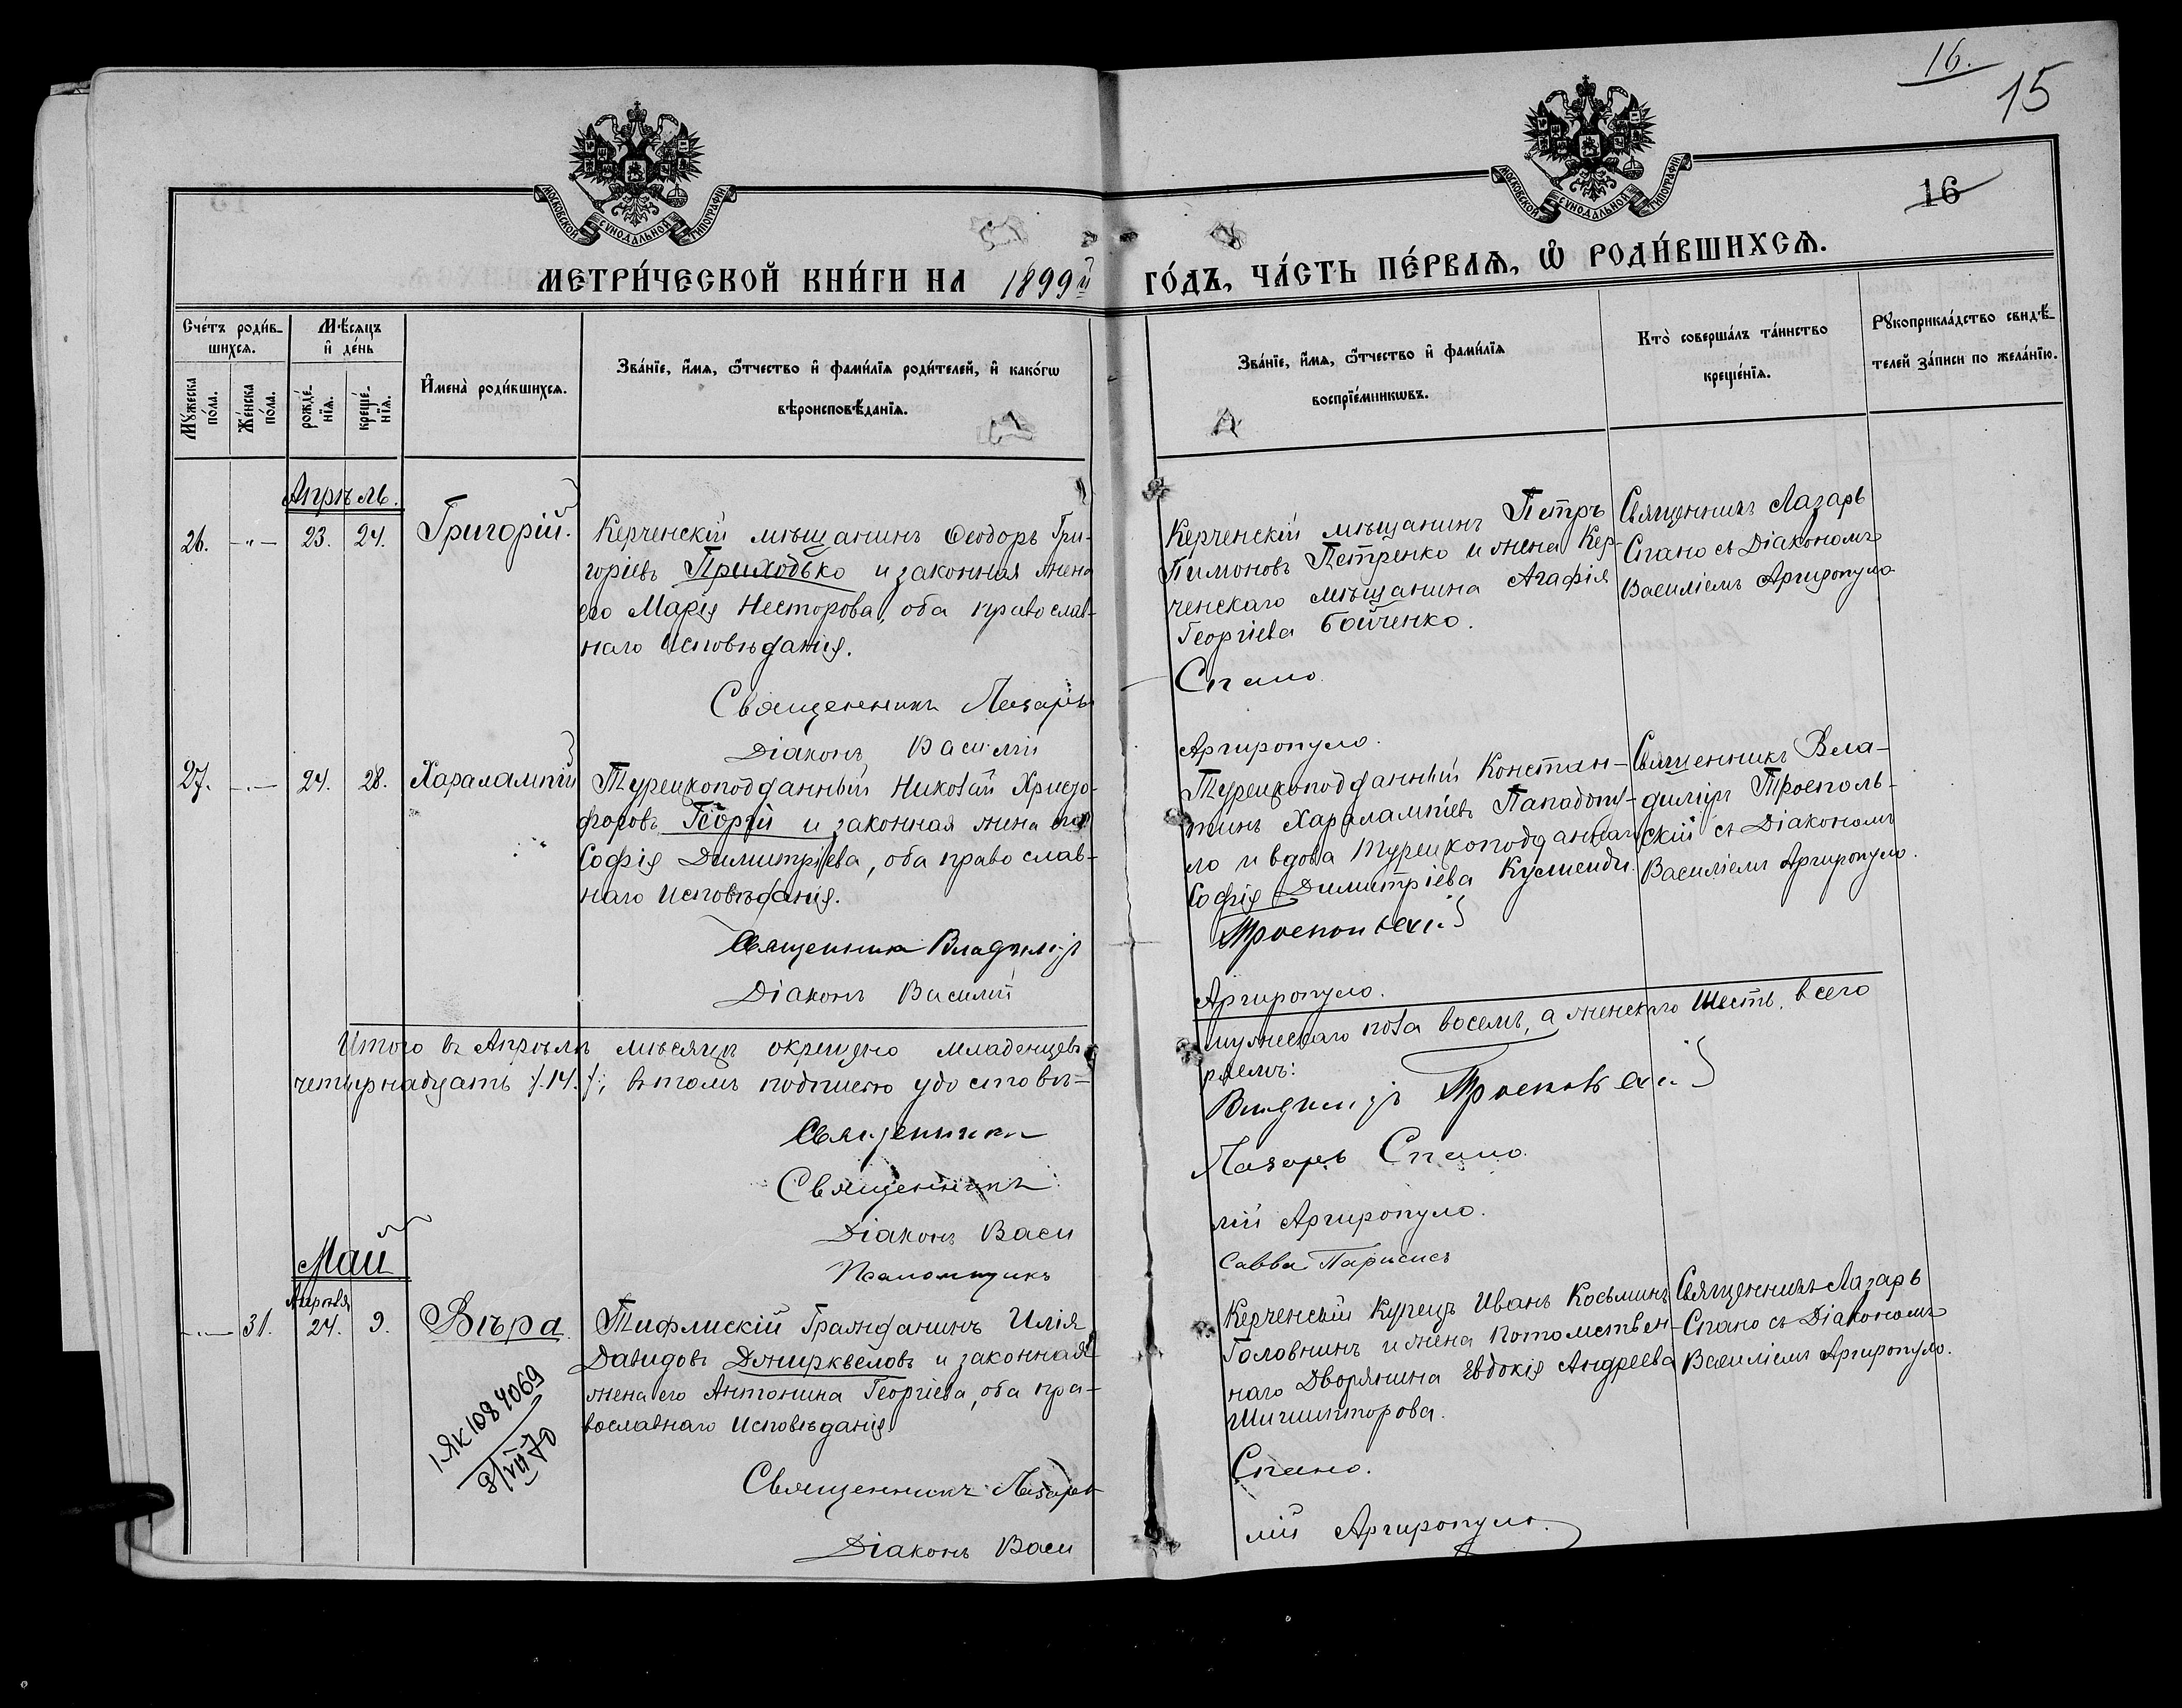 16.
15
16
МОСКОВСКОЙ СѴНОДАЛЬНОЙ ТИПОГРАФІИ
МОСКОВСКОЙ СѴНОДАЛЬНОЙ ТИПОГРАФІИ
МЕТРИ́ЧЕСКОЙ КНИ́ГИ НА 1899й ГО́ДЪ, ЧА́СТЬ ПЕ́РВАѦ, Ѡ҆ РОДИ́ВШИХСѦ.
Сче́тъ роди́в-
шихсѧ.
Мꙋ́жеска
по́ла.
Же́нска
по́ла.
Мѣ́сѧцъ
и҆ де́нь
рожде́-
нїѧ.
креще́-
нїѧ.
И҆мена̀ роди́вшихсѧ.
Зва́нїе, и҆́мѧ, ѻ҆́тчество и҆ фами́лїѧ роди́телей, и҆ како́гѡ
вѣроисповѣ́данїѧ.
Зва́нїе, и҆́мѧ, ѻ҆́тчество и҆ фами́лїѧ
воспрїе́мникѡвъ.
Кто̀ соверша́лъ та́инство
креще́нїѧ.
Рꙋкоприкла́дство свидѣ́-
телей за́писи по жела́нїю.
Апрѣль.
26. -"- 23. 24. Григорій.
Керченскій мѣщанинъ Ѳеодоръ Гри-
горіевъ Приходько и законная жена
его Марія Несторова, оба православ-
наго исповѣданія.
Священникъ Лазарь
Діаконъ Василій
Керченскій мѣщанинъ Петръ
Пимоновъ Петренко и жена Кер-
ченскаго мѣщанина Агафія
Георгіева Бойченко.
Спано
Аргиропуло.
Священникъ Лазарь
Спано съ Діакономъ
Василіемъ Аргиропуло
27. -"- 24. 28. Харалампій
Турецкоподданный Николай Христо-
форовъ Георгій и законная жена его
Софія Димитріева, оба православ-
наго исповѣданія.
Священникъ Владиміръ
Діаконъ Василій
Турецкоподданный Констан-
тинъ Харалампіевъ Пападопу-
ло и вдова турецкоподданнаго
Софія Димитріева
Троепольскій
Аргиропуло.
Священникъ Вла-
диміръ Троеполь-
скій съ Діакономъ
Василіемъ Аргиропуло.
Итого въ Апрѣлѣ мѣсяцѣ окрещено младенцевъ мужескаго пола восемь, а женскаго шесть, всего
четырнадцать /.14./, въ томъ подписью удостовѣ-ряемъ:
Священникъ Владиміръ Троепольскій
Священникъ Лазарь Спано
Діаконъ Василій Аргиропуло.
Псаломщикъ Савва Парисисъ
Май
Апрѣля
-"- 31. 24. 9. Вѣра
Тифлискій Гражданинъ Илія
Давидовъ Джирквеловъ и законная
жена его Антонина Георгіева, оба пра-
вославнаго исповѣданія
Священникъ Лазарь
Діаконъ Васи
Керченскій Купецъ Иванъ Косьминъ
Головнинъ и жена потомствен-
наго Дворянина Евдокія Андреева
Спано.
лій Аргиропуло.
Священникъ Лазарь
Спано съ Діакономъ
Василіемъ Аргиропуло.
1 ЯК 1084069
8/VII 70